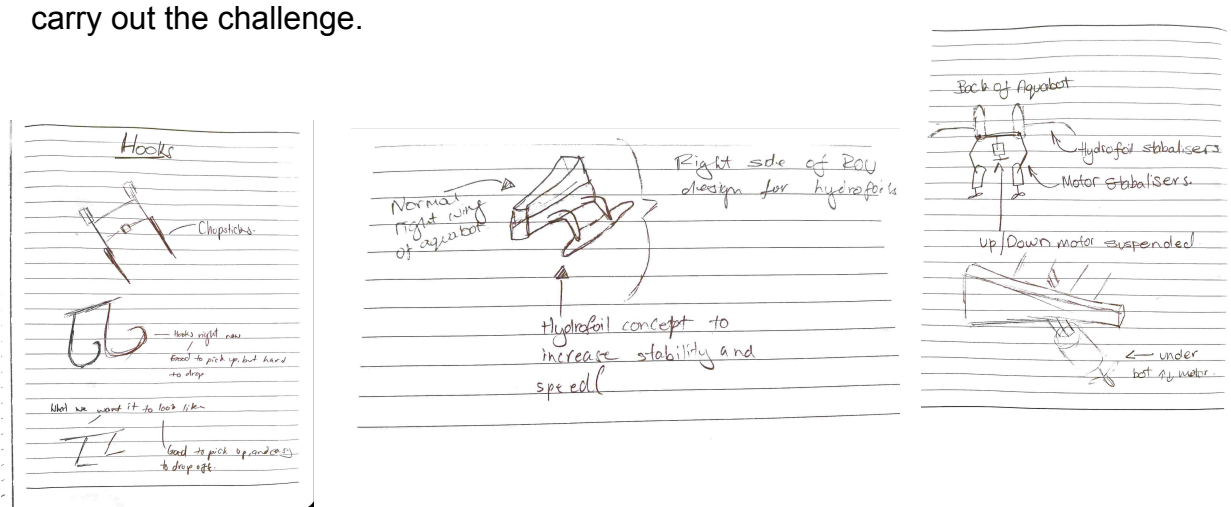 carry out the challenge.
Hooks
Chopsticks.
Hooks right now
Good to pick up, but hard
to drop
What we want it to look like
Good to pick up, and easy
to drop off.
Normal
right wing
of aquabot
Right side of ROV
design for hydrofoils
Hydrofoil concept to
increase stability and
speed
Back of Aquabot
Hydrofoil stabalisers
Motor stabalisers.
Up/Down motor suspended
under
bot ↑↓ motor